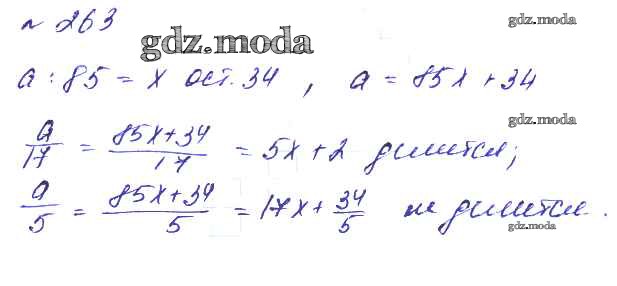 № 263
gdz.moda
gdz.moda
a : 85 = x ост. 34 , a = 85x + 34
gdz.moda
a/17 = (85x + 34)/17 = 5x + 2 делится;
a/5 = (85x + 34)/5 = 17x + 34/5 не делится.
gdz.moda